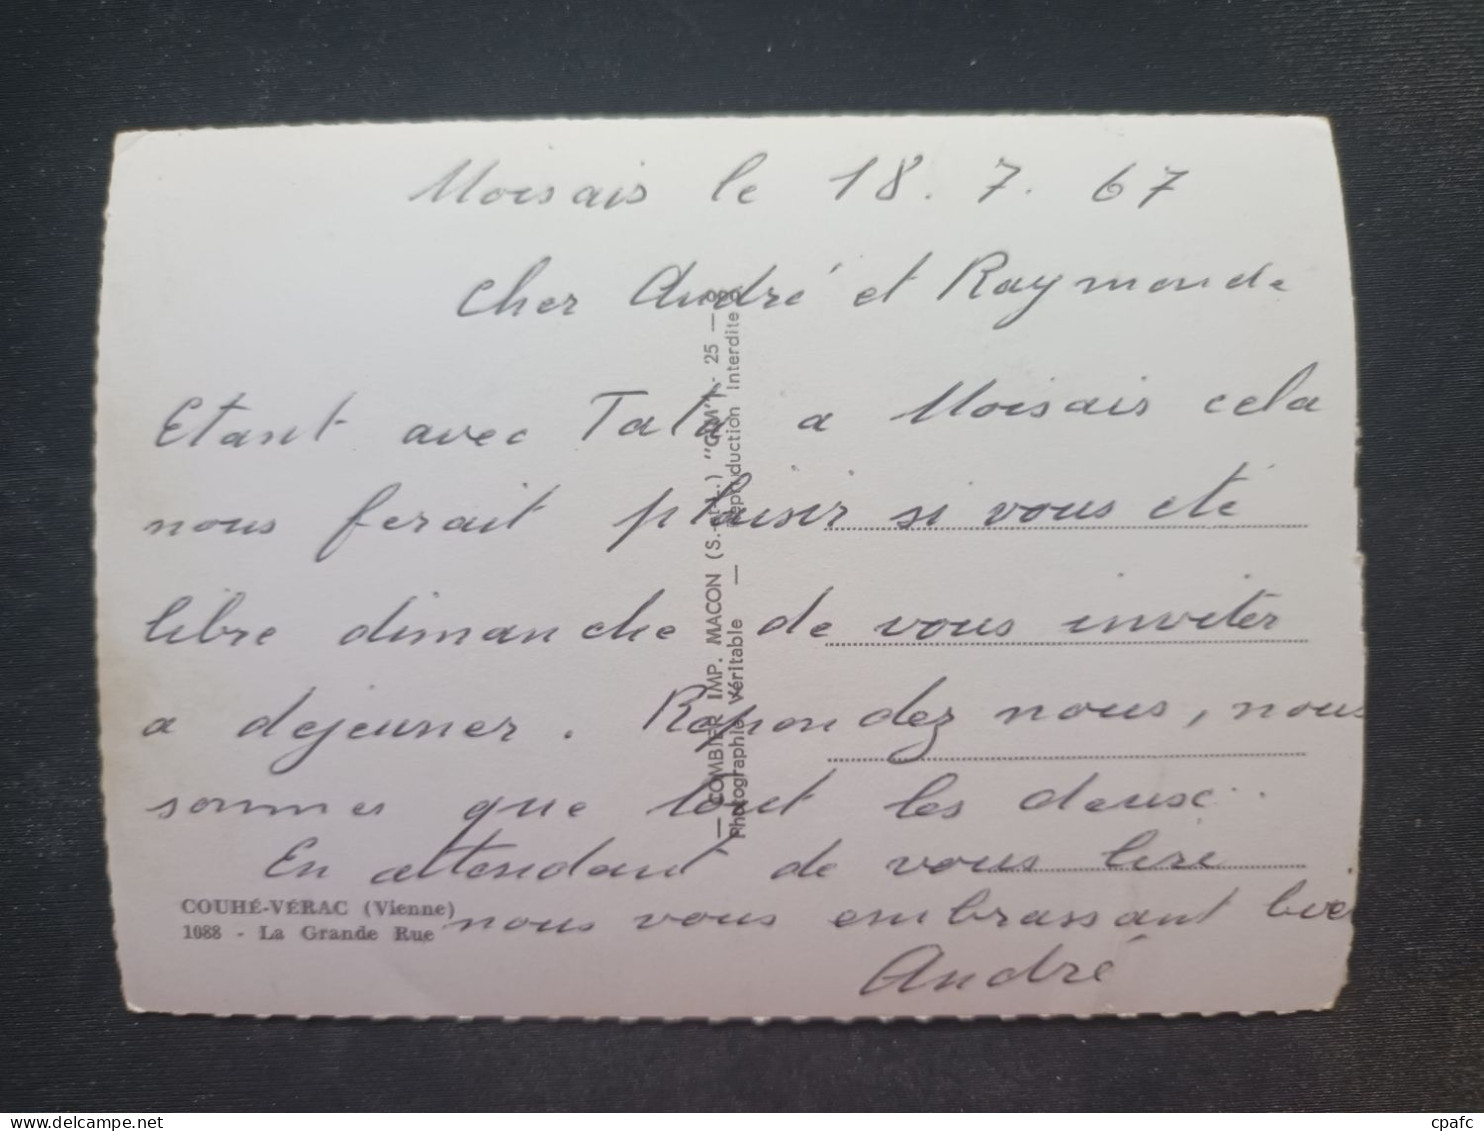 Moisais le 18.7.67
cher André et Raymonde
Etant avec Tata a Moisais cela
nous ferait plaisir si vous eté
libre dimanche de vous inviter
a dejeuner. Repondez nous, nous
sommes que tout les deux..
En attendant de vous lire
nous vous embrassant bie
André
COUHÉ-VÉRAC (Vienne)
1088 - La Grande Rue
— COMBIER IMP. MACON (S.-et-L.) "CIM"
Photographie Véritable — Reproduction Interdite
cpafc
delcampe.net